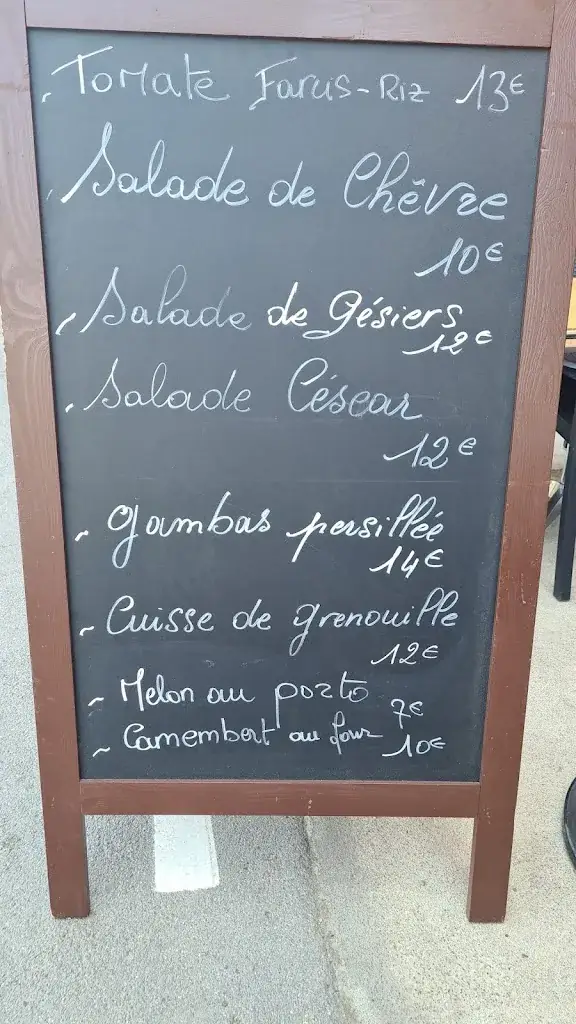 - Tomate Farcis-Riz 13€
- Salade de Chêvre
10€
- Salade de Gésiers
12€
- Salade César
12€
- Gambas persillée
14€
- Cuisse de grenouille
12€
- Melon au porto 7€
- Camembert au four 10€